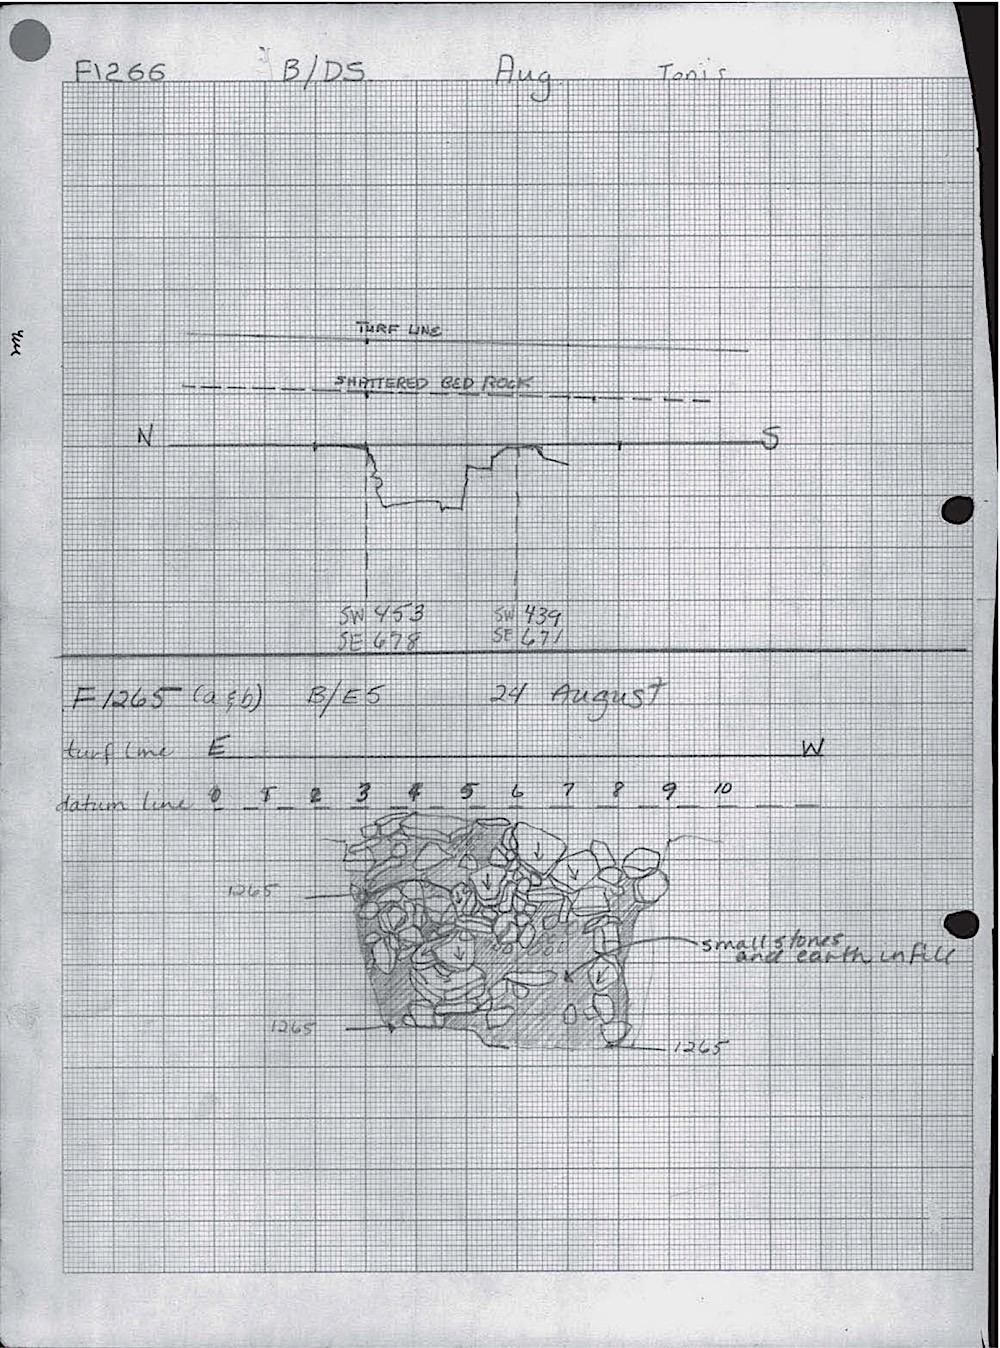 F1266 B/DS Aug Toni's
TURF LINE
SHATTERED BED ROCK
N S
SW 453 SW 439
SE 678 SE 671
F1265 (a & b) B/E5 24 August
turf line E W
datum line 0 1 2 3 4 5 6 7 8 9 10
1265
small stones
and earth infill
1265
1265